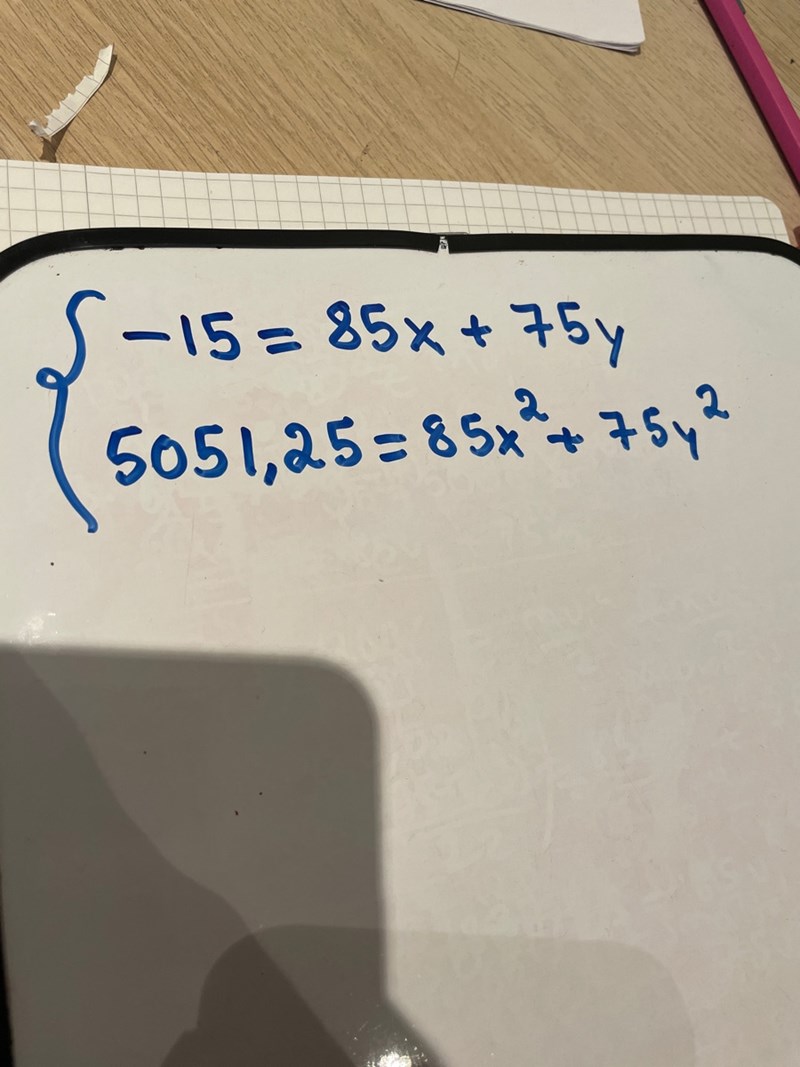 -15 = 85x + 75y
5051,25 = 85x² + 75y²